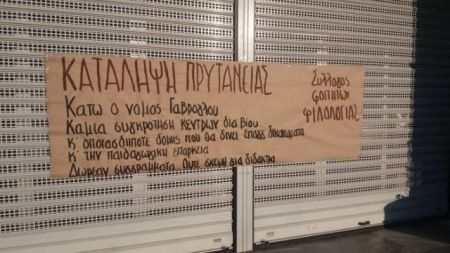 ΚΑΤΑΛΗΨΗ ΠΡΥΤΑΝΕΙΑΣ
Κατω ο νομος Γαβρογλου
Καμια συγκροτηση κεντρων δια βιου
κ' οποιασδηποτε δομης που θα δινει επαγγ. δικαιωματα
κ' την παιδαγωγικη επαρκεια
Δωρεαν συγγραμματα. Ουτε σκεψη για διδακτρα
Συλλογος
φοιτητων
ΦΙΛΟΛΟΓΙΑΣ